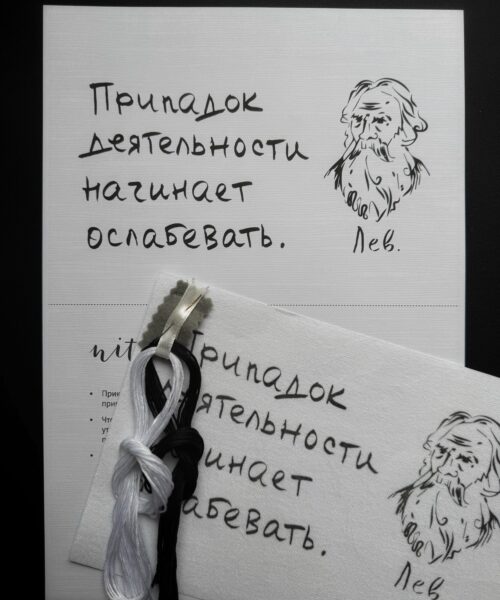 Припадок
деятельности
начинает
ослабевать.
Лев.
nit
Припадок
деятельности
чинает
абевать.
Лев